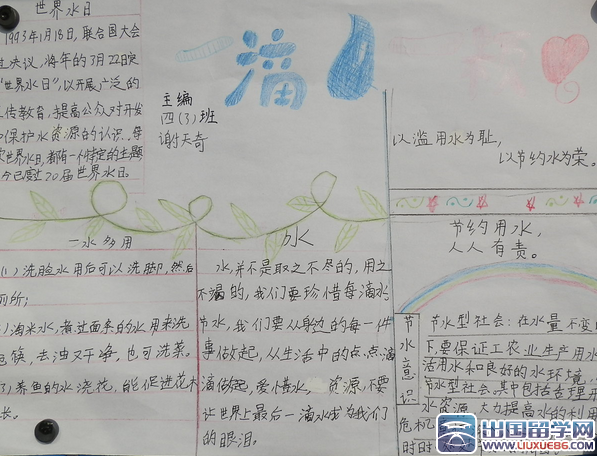 世界水日
1993年1月18日,联合国大会
过决议,将年的3月22日定
“世界水日”,以开展广泛的
传教育,提高公众对开发
保护水资源的认识。每
世界水日,都有一个特定的主题
今已度过20届世界水日。
一滴
主编
四(3)班
谢天奇
以滥用水为耻,
以节约水为荣。
节约用水,
人人有责。
一水多用
(1)洗脸水用后可以洗脚,然后
厕所;
)淘米水,煮过面条的水用来洗
碗筷,去油又干净,也可洗菜。
3)养鱼的水浇花,能促进花木
长。
水
水,并不是取之不尽的,用之
不竭的,我们要珍惜每滴水
节水,我们要从身边的每一件
事做起,从生活中的点点滴
滴做起,爱惜水 资源,不要
让世界上最后一滴水成为我们
的眼泪。
节水意识
危机
时时
节水型社会:在水量不变
下,要保证工农业生产用水
活用水和良好的水环境
节水型社会,其中包括合理开
水资源,大力提高水的利用
出国留学网
WWW.LIUXUE86.COM